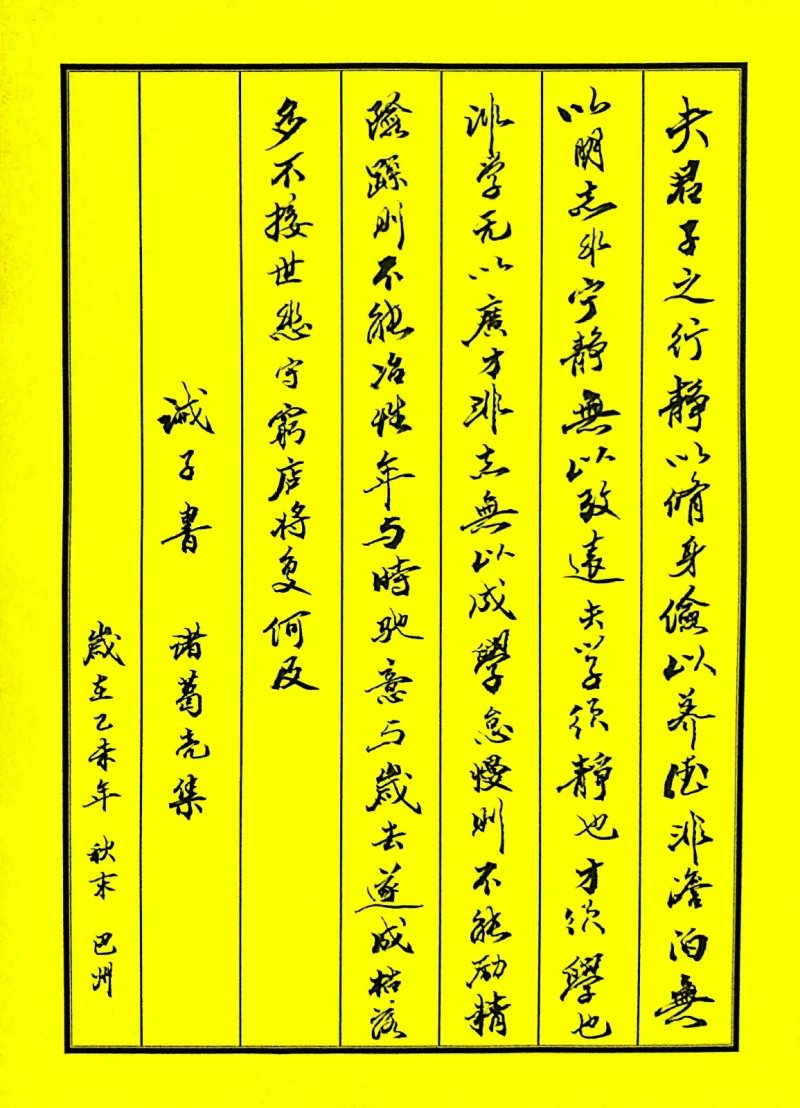 夫君子之行静以脩身儉以养德非澹泊無
以明志非宁静無以致遠夫学须静也才须學也
非学无以廣才非志無以成學怠慢则不能励精
险躁则不能冶性年与時馳意与歲去遂成枯落
多不接世悲守窮庐将复何及
诫子書 诸葛亮集
歲在乙未年 秋末 巴州